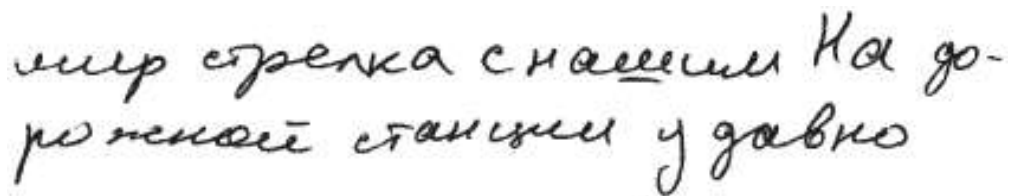 мир стрелка с нашим На до-
рожной станции у давно